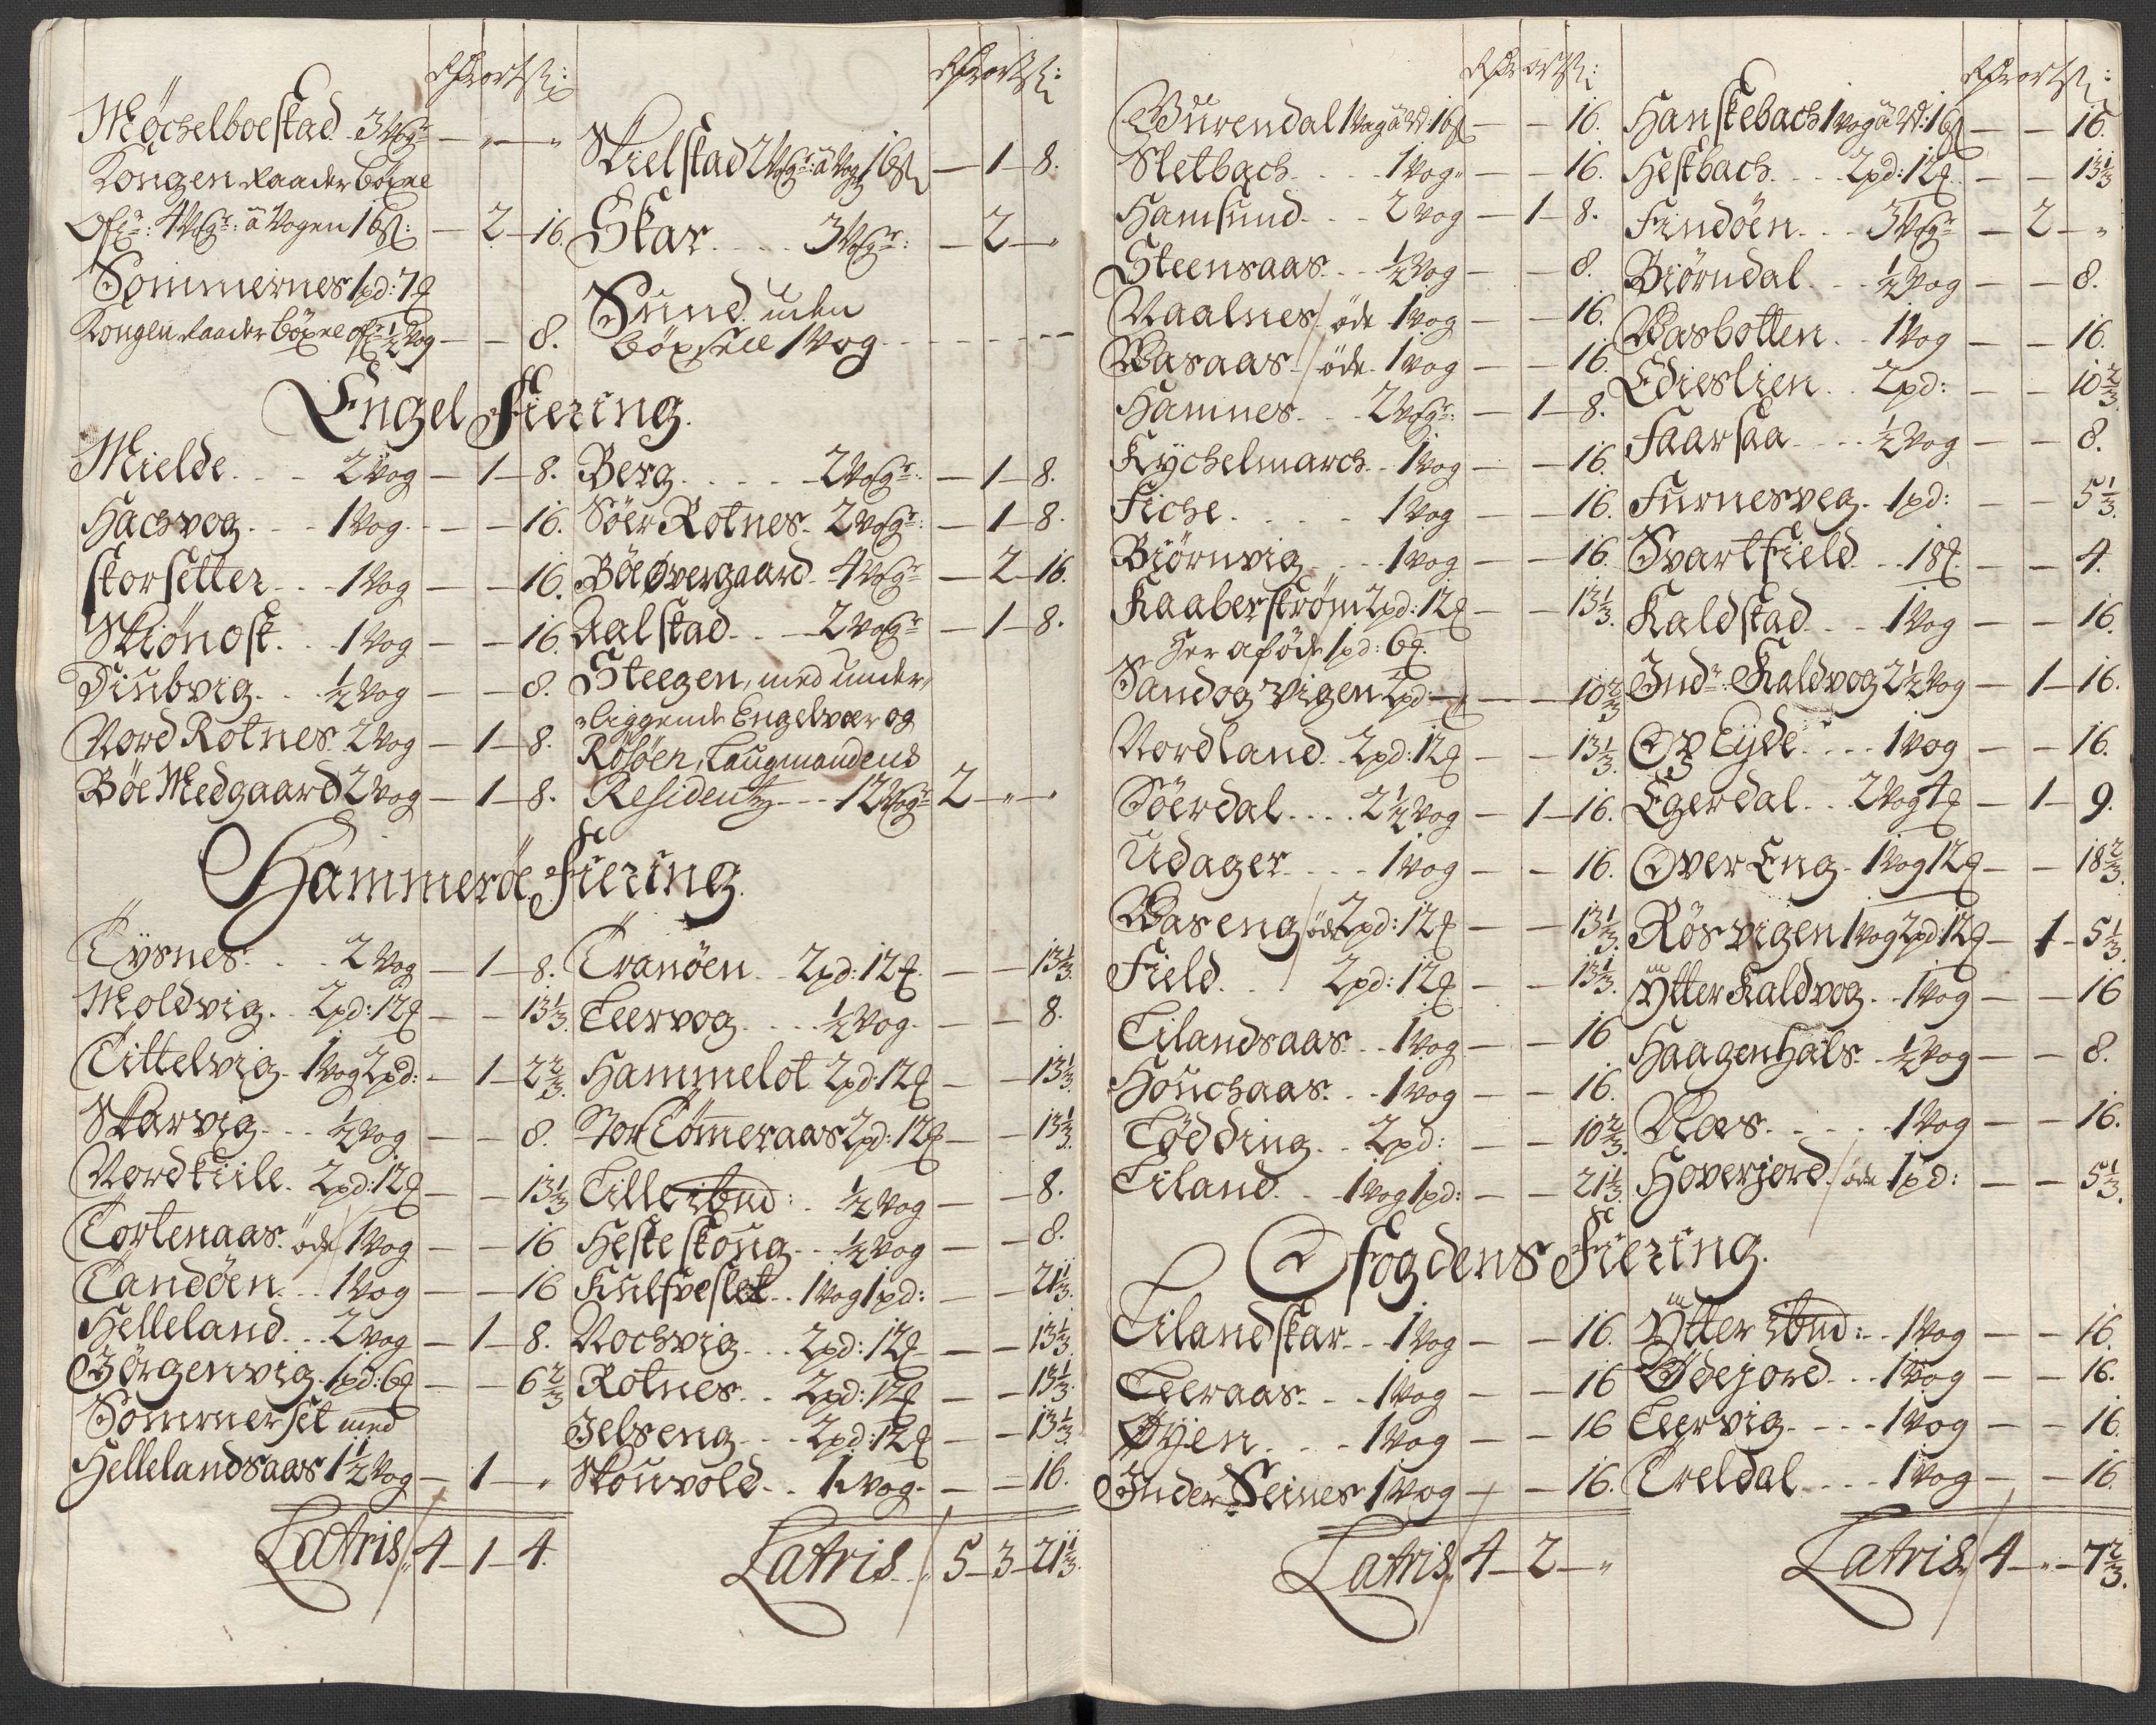 Rdr ort ß:
Möchelboestad. 3 Vogr — „ — „
Kongen Raader böxne
Ofr: 4 Vogr: â Vogen 16 ß: — 2 — 16.
Sommernes 1 pd: 7 ℔
Kongen Raader böxne ofr ½ Vog — — 8.
Rdr ort ß:
Skielstad 2 Vogr: â Vog 16 ß — 1 — 8.
Skar. . . . 3 Vogr: — 2 — „
Sund uden
böxsell 1 Vog - - - - - -
Engel Fiering.
Mielde. . . 2 Vog — 1 — 8.
Hachvog. . . 1 Vog. — — 16.
Storsetter. . . 1 Vog — — 16.
Skiönost. . . 1 Vog — — 16.
Diubvig. . . ½ Vog — — 8.
Nord Rotnes. 2 Vog — 1 — 8.
Böe Medgaard 2 Vog — 1 — 8.
Berg. . . . . 2 Vogr: — 1 — 8.
Söer Rotnes. 2 Vogr: — 1 — 8.
Böe Øvergaard. 4 Vogr — 2 — 16.
Aalstad. . . 2 Vogr — 1 — 8.
Steegen, med under,
liggende Engelvær og
Rösöen, Laugmandens
Residentz - - - 12 Vogr 2 — „ — „
Hammeröe Fiering.
Tysnes. . . 2 Vog — 1 — 8.
Moldvig. . 2 pd: 12 ℔ — — 13⅓.
Tittelvig. 1 Vog 2 pd: — 1 — 2⅔.
Skarvig. . . ½ Vog — — 8.
Nordkiile. 2 pd: 12 ℔ — — 13⅓
Tortenaas. öde 1 Vog — — 16
Tandöen. . . 1 Vog — — 16
Helleland. . . 2 Vog — 1 — 8.
Görgenvig. 1 pd: 6 ℔ — — 6⅔
Sommerset med
Hellelandsaas 1½ Vog — 1 — „
Latris 4 — 1 — 4.
Tranöen. . 2 pd: 12 ℔. — — 13⅓.
Teervog. . . . ½ Vog. — — 8.
Hammelot 2 pd. 12 ℔ — — 13⅓.
Stor Tömeraas 2 pd: 12 ℔ — — 13⅓.
Tille ibnd: . ½ Vog — — 8.
Hesteskoug. . . ½ Vog — — 8.
Kulfveslet. . 1 Vog 1 pd: — — 21⅓.
Nochvig. . . 2 pd: 12 ℔ — — 13⅓.
Rotnes. . . 2 pd: 12 ℔ — — 13⅓.
Jelseng. . . 2 pd: 12 ℔ — — 13⅓.
Skouvold. . . 1 Vog. — — 16.
Latris. „ 5 — 3 — 21⅓.
Rdr ort ß:
Burendal 1 Vog â Vd: 16 ß — — 16.
Sletbach. . . . 1 Vog. — — 16.
Hamsund. . . 2 Vog — 1 — 8.
Steensaas. . . ½ Vog — — 8.
Naalnes / öde 1 Vog — — 16.
Basaas / öde 1 Vog — — 16.
Hamnes. . . 2 Vogr: — 1 — 8.
Kychelmarch. . 1 Vog — — 16.
Fiche. . . . . 1 Vog — — 16.
Biörnvig. . . . 1 Vog — — 16.
Kaaberström 2 pd: 12 ℔ — — 13⅓.
Her af öde 1 pd: 6 ℔.
Sand og Vigen 2 pd: — — 10⅔
Nordland. . 2 pd: 12 ℔ — — 13⅓.
Söerdal. . . . 2½ Vog — 1 — 16.
Udager. . . . 1 Vog — — 16.
Baseng / öde 2 pd: 12 ℔ — — 13⅓.
Field. . . 2 pd: 12 ℔ — — 13⅓.
Eilandsaas. . . 1 Vog — — 16
Houchaas. . . 1 Vog — — 16.
Tødding. . . 2 pd: — — 10⅔.
Eiland. . . 1 Vog 1 pd: — — 21⅓.
Rdr ort ß:
Hanskebach 1 Vog â Vd: 16 ß — — 16.
Hestbach. . . . 2 pd: 12 ℔ — — 13⅓
Findöen. . . 3 Vogr — 2 — „
Biörndal. . . ½ Vog — — 8.
Basbotten. . . 1 Vog — — 16.
Edieslien. . . 2 pd: — — 10⅔.
Faarsaa. . . . ½ Vog — — 8.
Furnesveg. . 1 pd: — — 5⅓.
Svartfield. . . 18 ℔. — — 4.
Kaldstad. . . 1 Vog — — 16.
Indr: Kaldvog 2½ Vog — 1 — 16.
Op Eyde. . . . 1 Vog — — 16.
Egerdal. . . 2 Vog 1 ℔ — 1 — 9.
Over Eng. 1 Vog 12 ℔ — — 18⅔.
Rösvigen 1 Vog 2 pd: 12 ℔ — 1 — 5⅓.
Ytter Kaldvog. . 1 Vog — — 16
Haagenhals. . ½ Vog — — 8.
Næs. . . . . 1 Vog — — 16.
Hoverjord. / öde 1 pd: — — 5⅓.
Ofogdens Fiering.
Eilandskar. . . 1 Vog — — 16.
Teeraas. . . 1 Vog — — 16
Øyen. . . . 1 Vog — — 16
Inder Seines 1 Vog — — 16.
Latris 4 — 2 — „
Ytter ibnd: . . 1 Vog — — 16.
Ødejord. . . 1 Vog — — 16.
Teervig. . . . 1 Vog — — 16.
Treldal. . . . 1 Vog — — 16.
Latris 4 — „ — 7⅔.